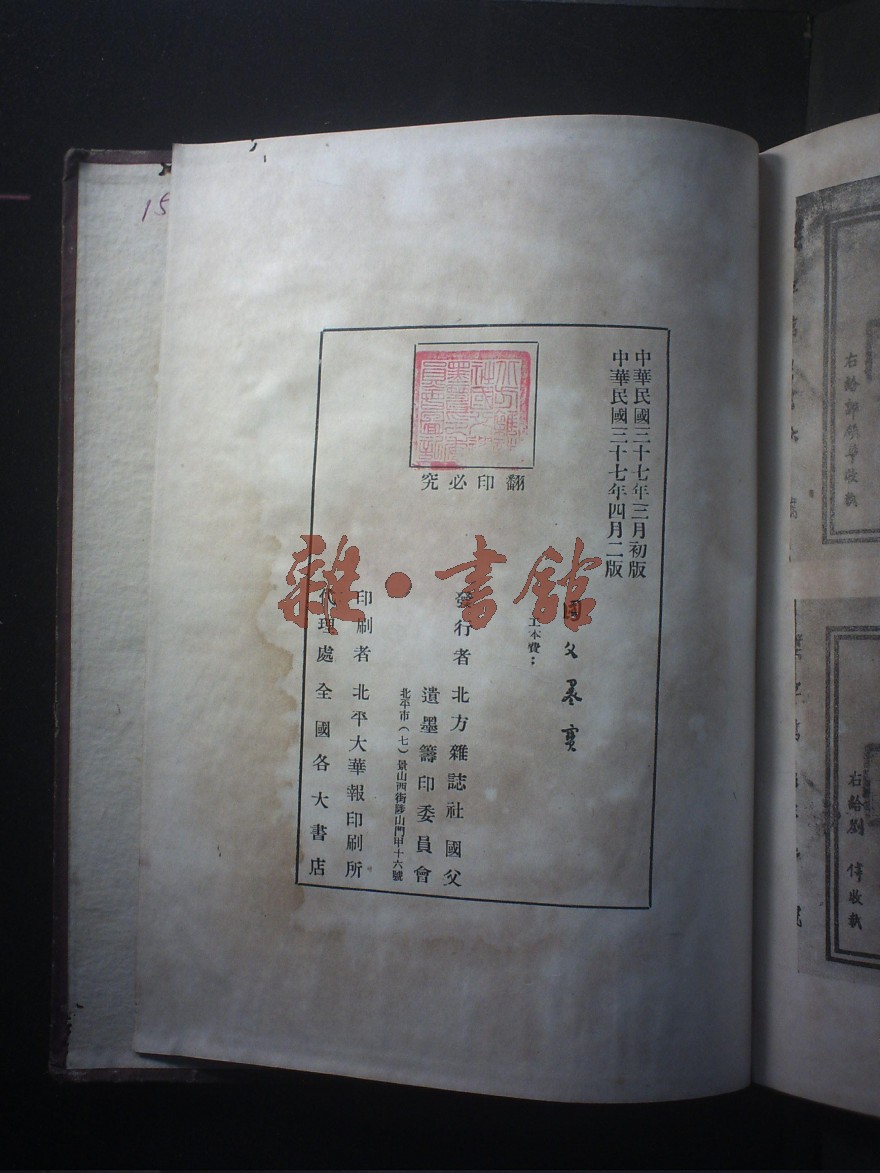 中華民國三十七年三月初版
中華民國三十七年四月二版
國父墨寶
工本費：
發行者 北方雜誌社 國父
遺墨籌印委員會
北平市（七）景山西街陟山門甲十六號
印刷者 北平大華報印刷所
代理處 全國各大書店
翻印必究
雜·書館
15
右給劉 偉收執